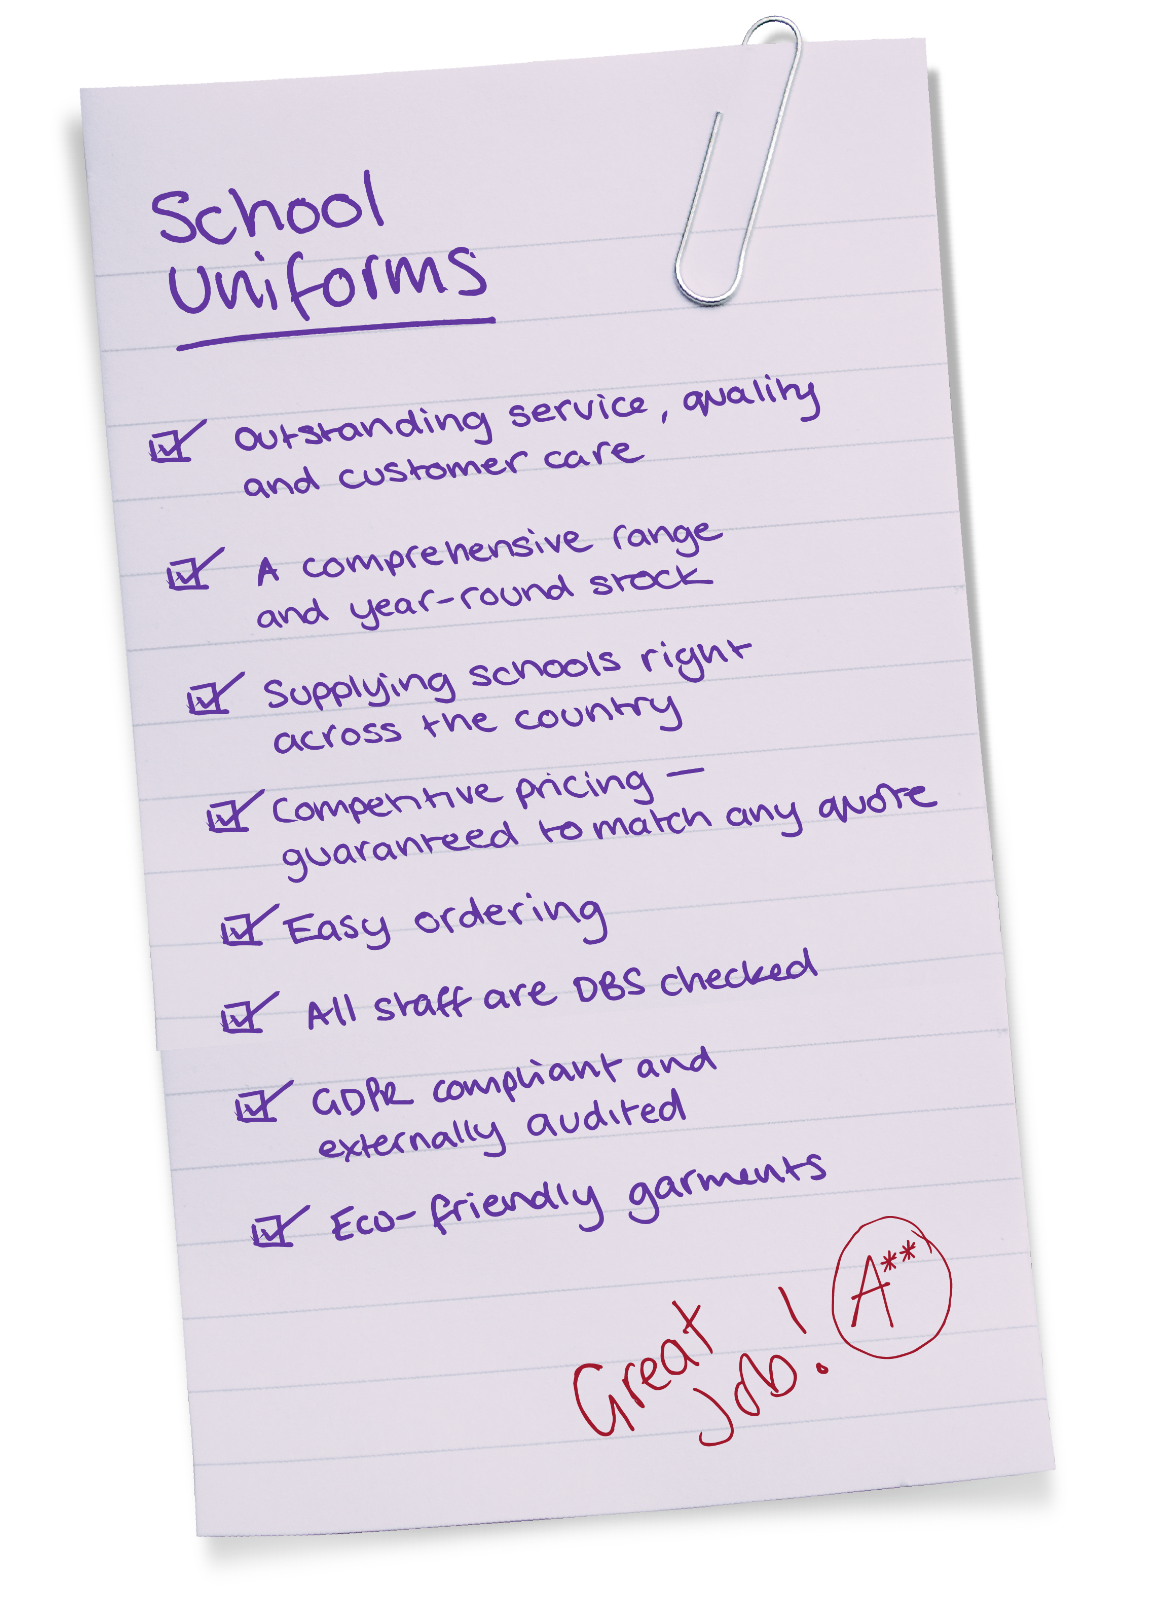 School
Uniforms
Outstanding service, quality
and customer care
A comprehensive range
and year-round stock
Supplying schools right
across the country
Competitive pricing —
guaranteed to match any quote
Easy ordering
All staff are DBS checked
GDPR compliant and
externally audited
Eco-friendly garments
Great
Job!
A**